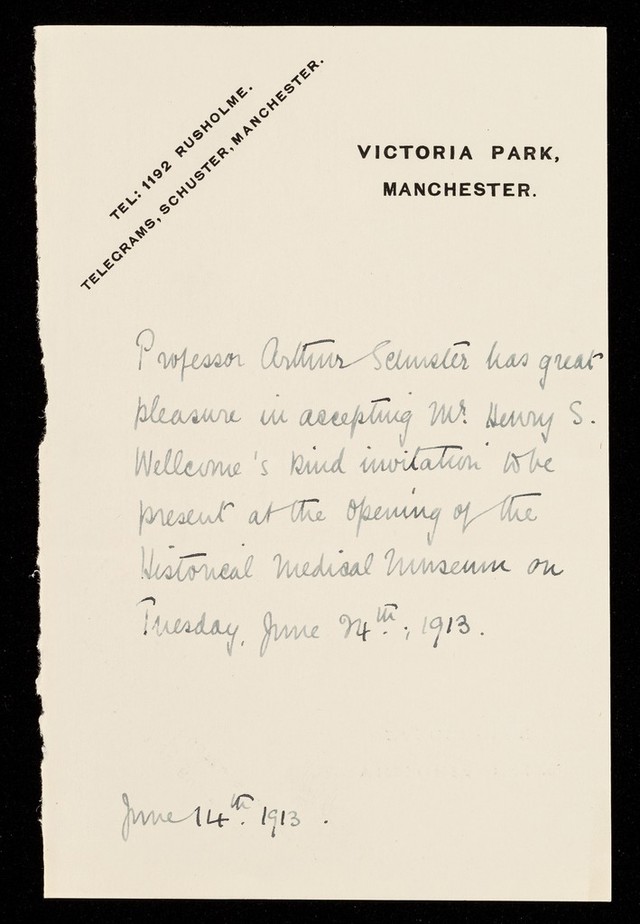 TEL: 1192 RUSHOLME.
TELEGRAMS, SCHUSTER, MANCHESTER.
VICTORIA PARK,
MANCHESTER.
Professor Arthur Schuster has great
pleasure in accepting Mr. Henry S.
Wellcome's kind invitation to be
present at the opening of the
Historical Medical Museum on
Tuesday, June 24th., 1913.
June 14th. 1913.